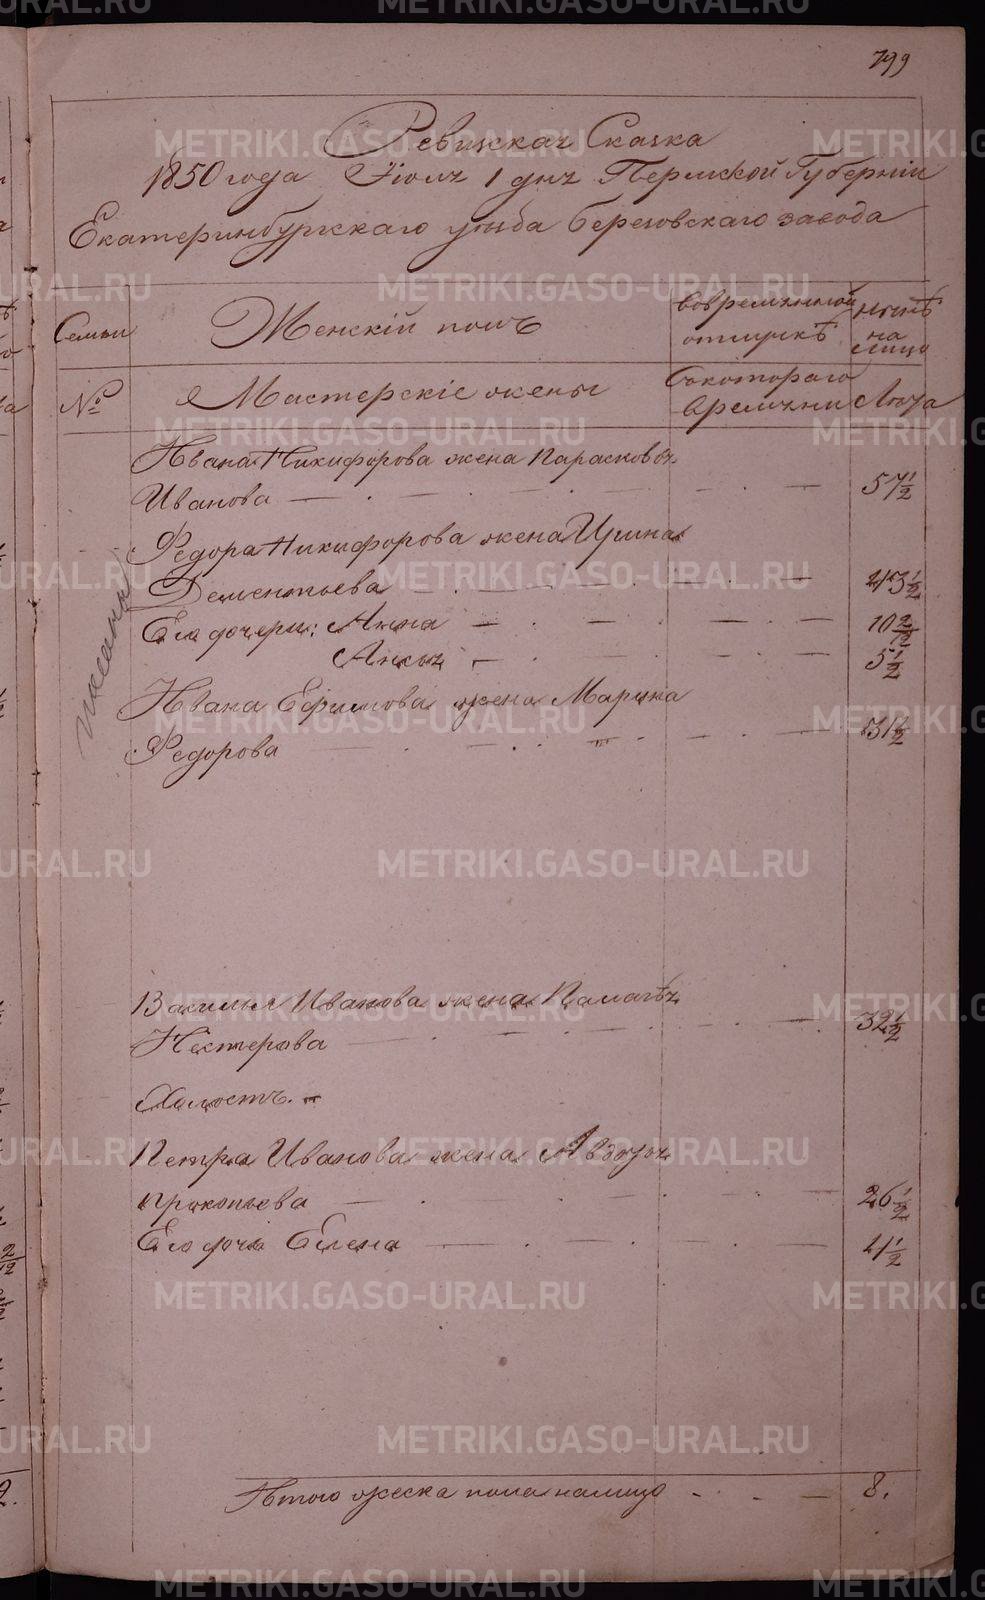 799
Ревизская Сказка
1850 года Іюля 1 дня Пермской Губерніи
Екатеринбургскаго уѣзда Березовскаго завода
Семьи
Женскій полъ
Во временной отлучкѣ
Нынѣ на лицо
№
Мастерскіе жены
Съ котораго времяни
Лѣта
Ивана Никифорова жена Парасковья
Иванова 57 1/2
Федора Никифорова жена Ирина
Дементьева 43 1/2
Его дочери: Анна 10 2/12
5 1/2
Ивана Ефимова жена Марина
Федорова 31 1/2
Василья Иванова жена Палагѣя
Нестерова 32 1/2
Холостъ.
Петра Иванова жена Авдотья
Прокопьева 26 1/2
Его дочь Елена 4 1/2
Итого женска пола на лицо 8.
METRIKI.GASO-URAL.RU